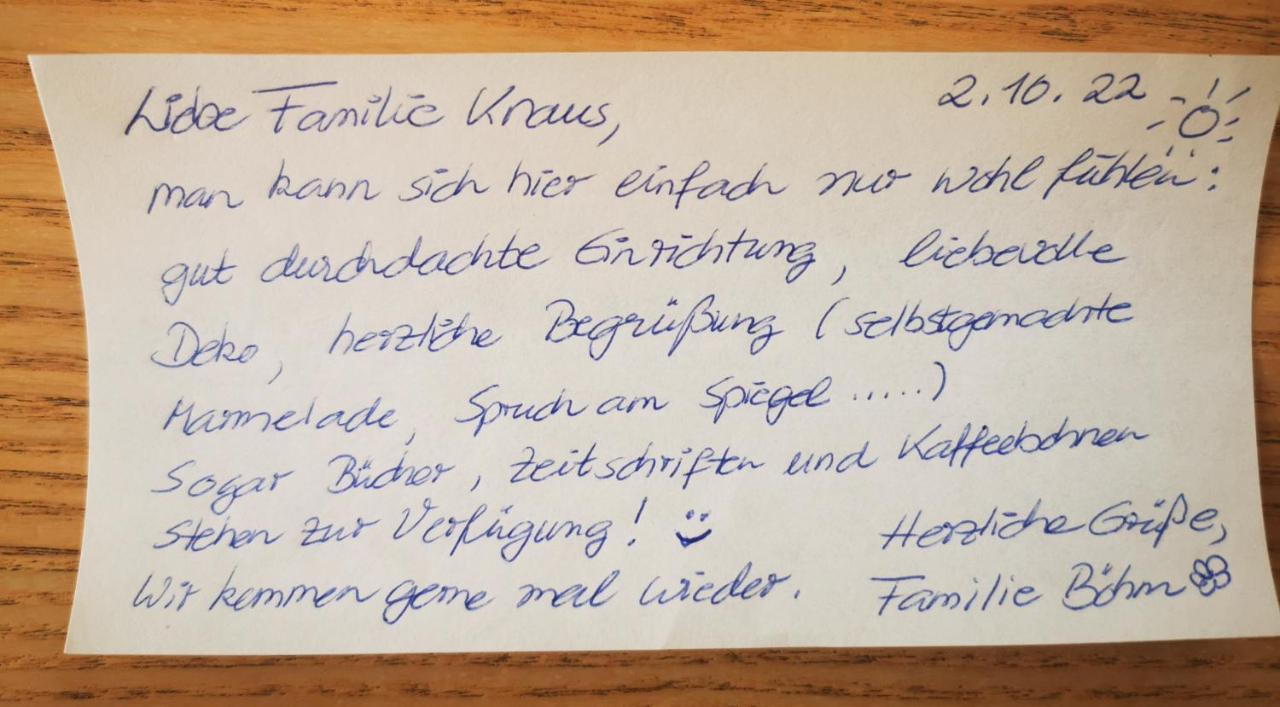 Liebe Familie Kraus, 2.10.22
man kann sich hier einfach nur wohl fühlen:
gut durchdachte Einrichtung, liebevolle
Deko, herzliche Begrüßung (selbstgemachte
Marmelade, Spruch am Spiegel .....)
Sogar Bücher, Zeitschriften und Kaffeebohnen
stehen zur Verfügung!
Herzliche Grüße,
Wir kommen gerne mal wieder. Familie Böhm